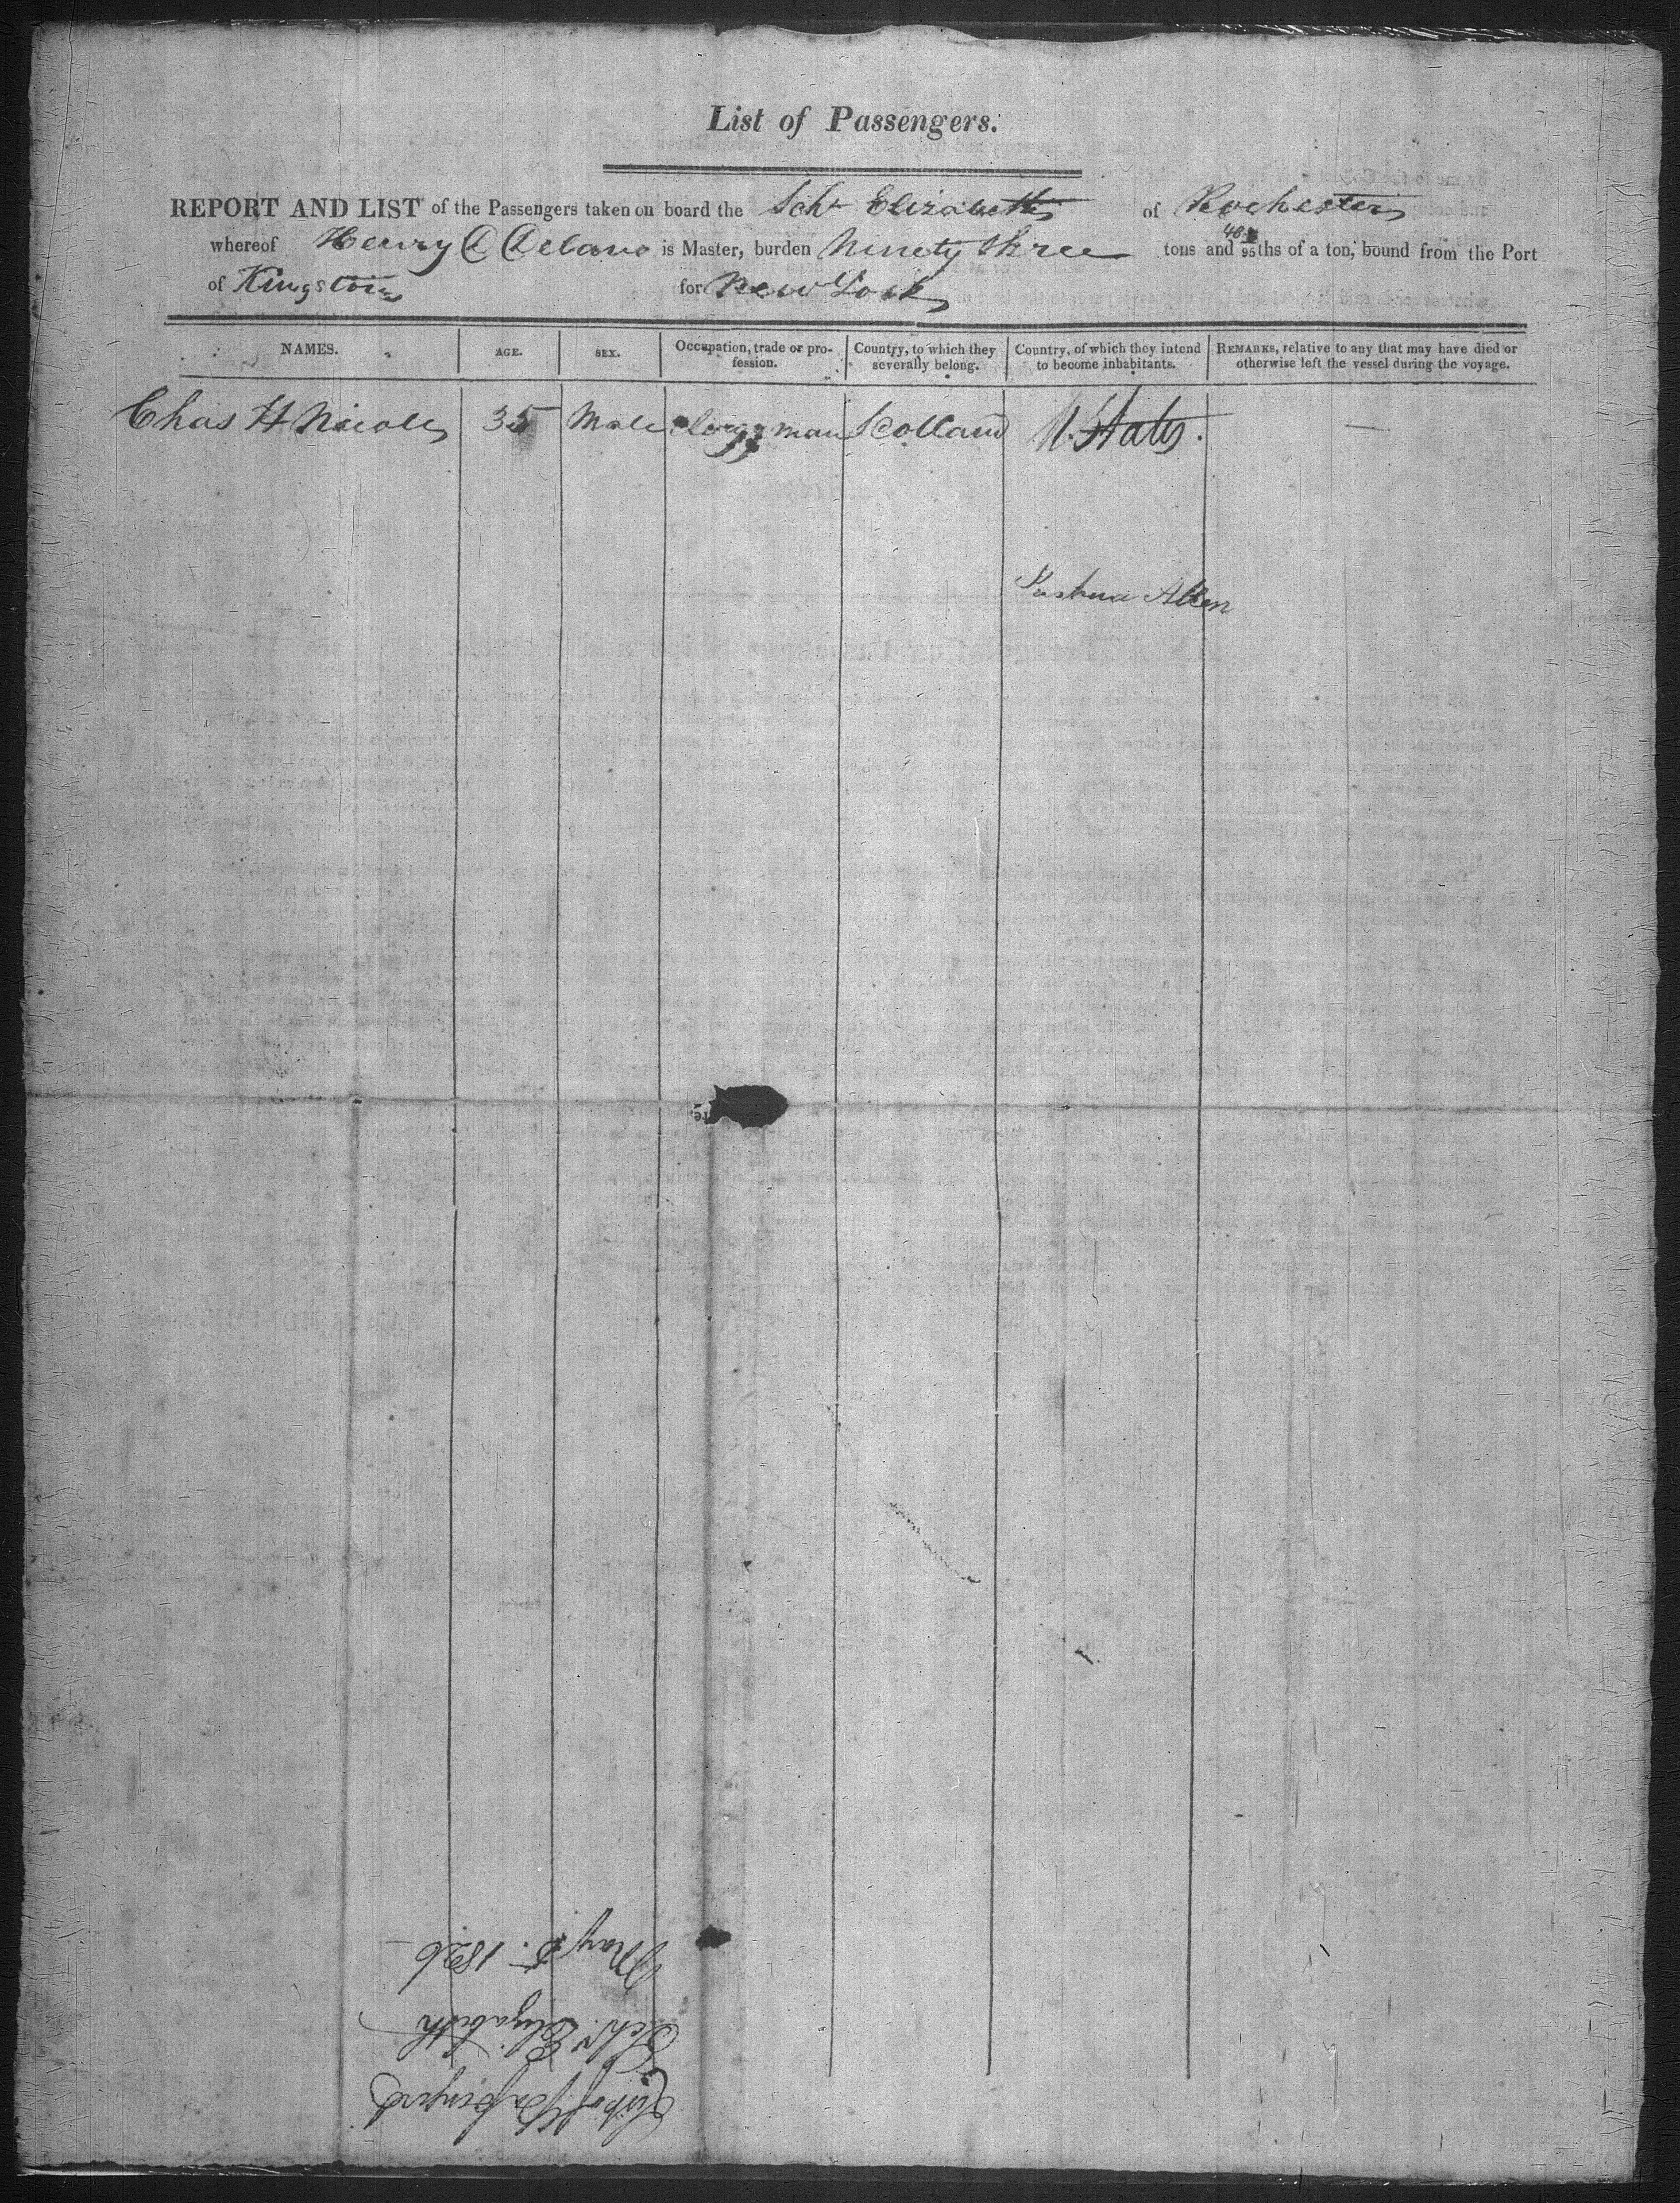 List of Passengers.
REPORT AND LIST of the Passengers taken on board the Schr Elizabeth of Rochester
whereof Henry D Delano is Master, burden Ninety three tons and 48/95ths of a ton, bound from the Port
of Kingston for New York
NAMES. AGE. SEX. Occupation, trade or profession. Country, to which they severally belong. Country, of which they intend to become inhabitants. REMARKS, relative to any that may have died or otherwise left the vessel during the voyage.
Chas H Nicoll 35 Male Clergyman Scotland U. States. —
Joshua Allen
List of Passengers
Schr. Elizabeth
May 5. 1826